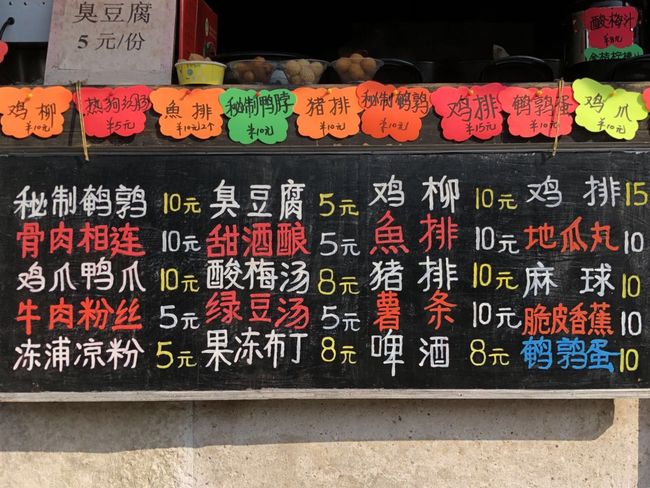 臭豆腐
5元/份
酸梅汁
¥8元
鸡柳
¥10元
热狗
¥5元
魚排
¥10元2个
秘制鸭脖
¥10元
猪排
¥10元
秘制鹌鹑
¥10元
鸡排
¥15元
鹌鹑蛋
¥10元
鸡爪
¥10元
秘制鹌鹑 10元 臭豆腐 5元 鸡柳 10元 鸡排 15
骨肉相连 10元 甜酒酿 5元 魚排 10元 地瓜丸 10
鸡爪鸭爪 10元 酸梅汤 8元 猪排 10元 麻球 10
牛肉粉丝 5元 绿豆汤 5元 薯条 10元 脆皮香蕉 10
冻浦凉粉 5元 果冻布丁 8元 啤酒 8元 鹌鹑蛋 10